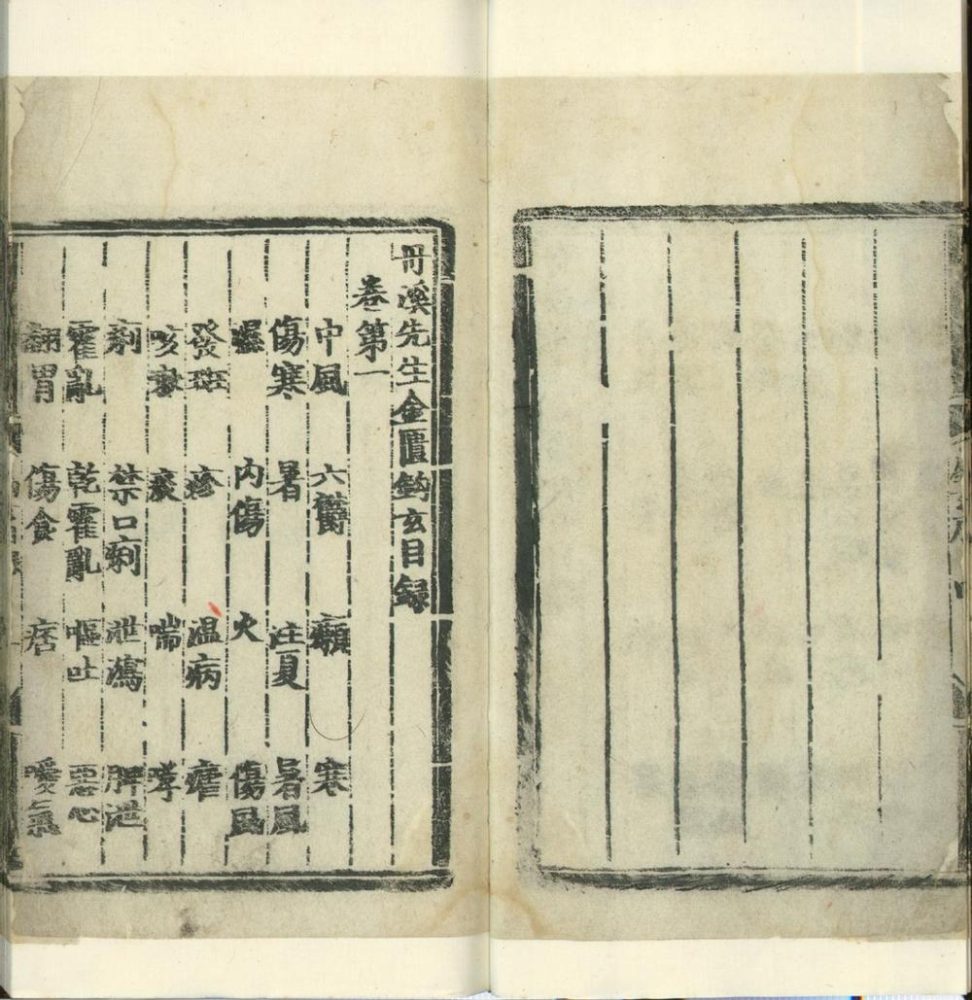 丹溪先生金匱鈎玄目録
卷第一
中風 六鬱 癩 寒
傷寒 暑 注夏 暑風
濕 內傷 火 傷風
發斑 疹 溫病 瘧
咳嗽 痰 喘 哮
痢 禁口痢 泄瀉 脾泄
霍亂 乾霍亂 嘔吐 惡心
翻胃 傷食 痞 噯氣